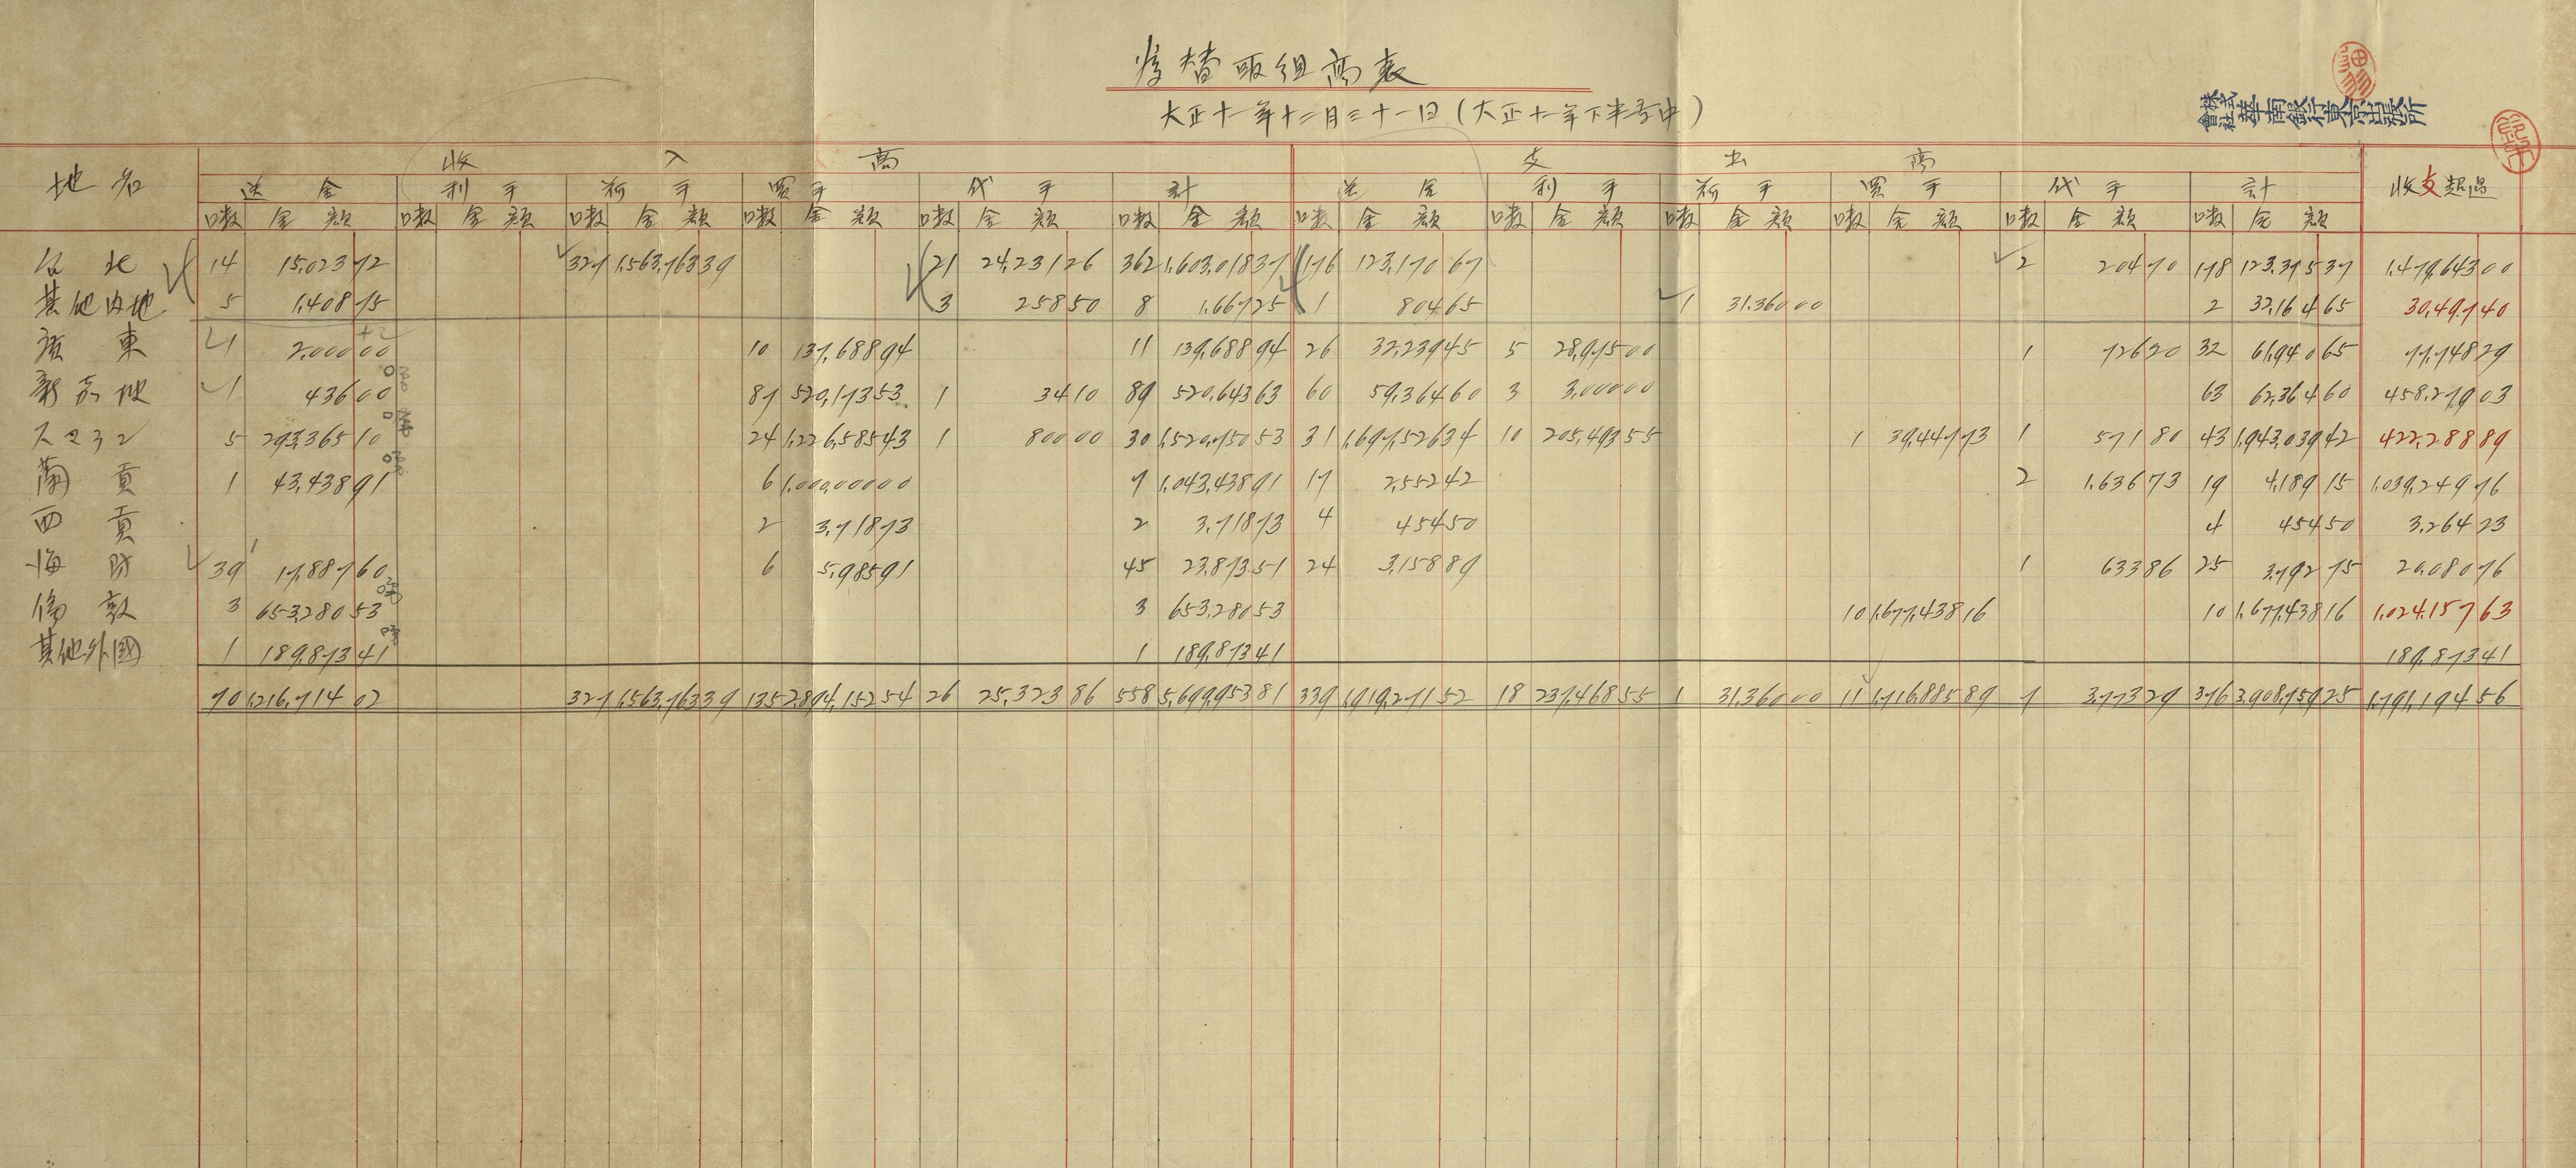 為替取組高表
大正十一年十二月三十一日(大正十一年下半季中)
株式會社華南銀行東京出張所
地名 收入高 支出高 收支超過
送金 利手 荷手 買手 代手 計 送金 利手 荷手 買手 代手 計
口数 金額 口数 金額 口数 金額 口数 金額 口数 金額 口数 金額 口数 金額 口数 金額 口数 金額 口数 金額 口数 金額 口数 金額
台北 14 15,023 72 327 1,563,763 39 21 24,231 26 362 1,603,018 37 176 123,170 67 2 204 70 178 123,375 37 1,479,643 00
其他内地 5 1,408 75 3 258 50 8 1,667 25 1 804 65 1 31,360 00 2 32,164 65 30,497 40
廣東 1 2,000 00 10 137,688 94 11 139,688 94 26 32,239 45 5 28,975 00 1 726 20 32 61,940 65 77,748 29
新嘉坡 1 436 00 87 520,173 53 1 34 10 89 520,643 63 60 59,364 60 3 3,000 00 63 62,364 60 458,279 03
スマラン 5 293,365 10 24 1,226,585 43 1 800 00 30 1,520,750 53 31 1,697,526 34 10 205,493 55 1 39,447 73 1 571 80 43 1,943,039 42 422,288 89
蘭貢 1 43,438 91 6 1,000,000 00 7 1,043,438 91 17 2,552 42 2 1,636 73 19 4,189 15 1,039,249 76
西貢 2 3,718 73 2 3,718 73 4 454 50 4 454 50 3,264 23
海防 39 17,887 60 6 5,985 91 45 23,873 51 24 3,158 89 1 633 86 25 3,792 75 20,080 76
倫敦 3 653,280 53 3 653,280 53 10 1,677,438 16 10 1,677,438 16 1,024,157 63
其他外國 1 189,873 41 1 189,873 41 189,873 41
70 1,216,714 02 327 1,563,763 39 135 2,894,152 54 26 25,323 86 558 5,699,953 81 339 1,919,271 52 18 237,468 55 1 31,360 00 11 1,716,885 89 7 3,773 29 376 3,908,759 25 1,791,194 56